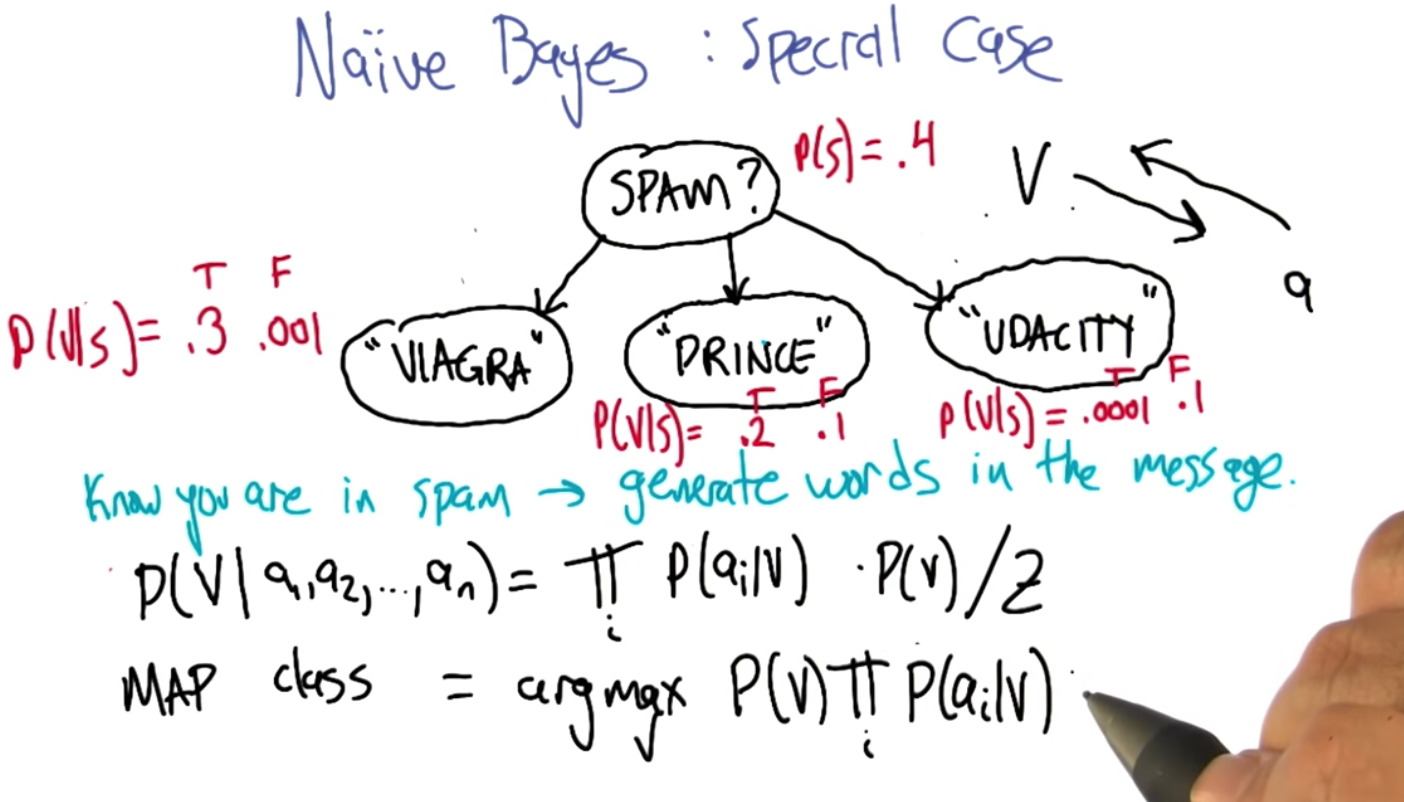 Naïve Bayes : Special Case
SPAM?
P(S) = .4
V
a
T F
P(V|S) = .3 .001
"VIAGRA"
"PRINCE"
"UDACITY"
T F
P(V|S) = .2 .1
T F
P(V|S) = .0001 .1
Know you are in spam → generate words in the message.
P(V| a₁,a₂,...,aₙ) = ∏ᵢ P(aᵢ|V) · P(V)/Z
MAP class = argmax P(V) ∏ᵢ P(aᵢ|V)